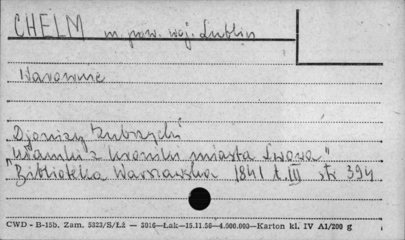 CHEŁM m. pow. woj. Lublin
Warownie
Djonizy Zubrzycki
"Ułamki z kroniki miasta Lwowa"
Biblioteka Warszawska 1841 t. III str. 394
CWD - B-15b. Zam. 5323/S/Łż — 5016—Łak—15.11.56—4.000.000—Karton kl. IV A1/200 g